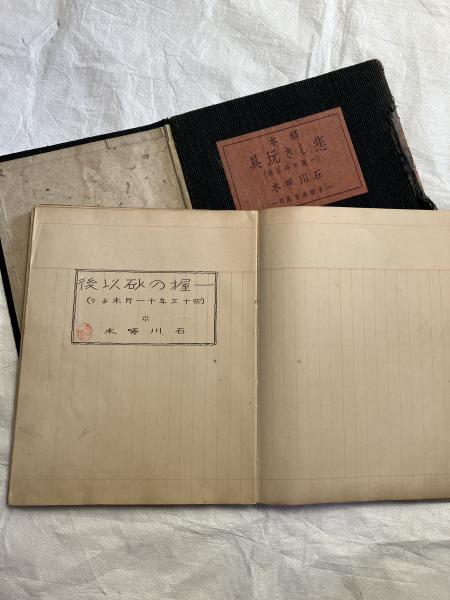 稿本
悲しき玩具
(一握の砂以後)
石川啄木
一握の砂以後
(四十三年十一月末より)
石川啄木